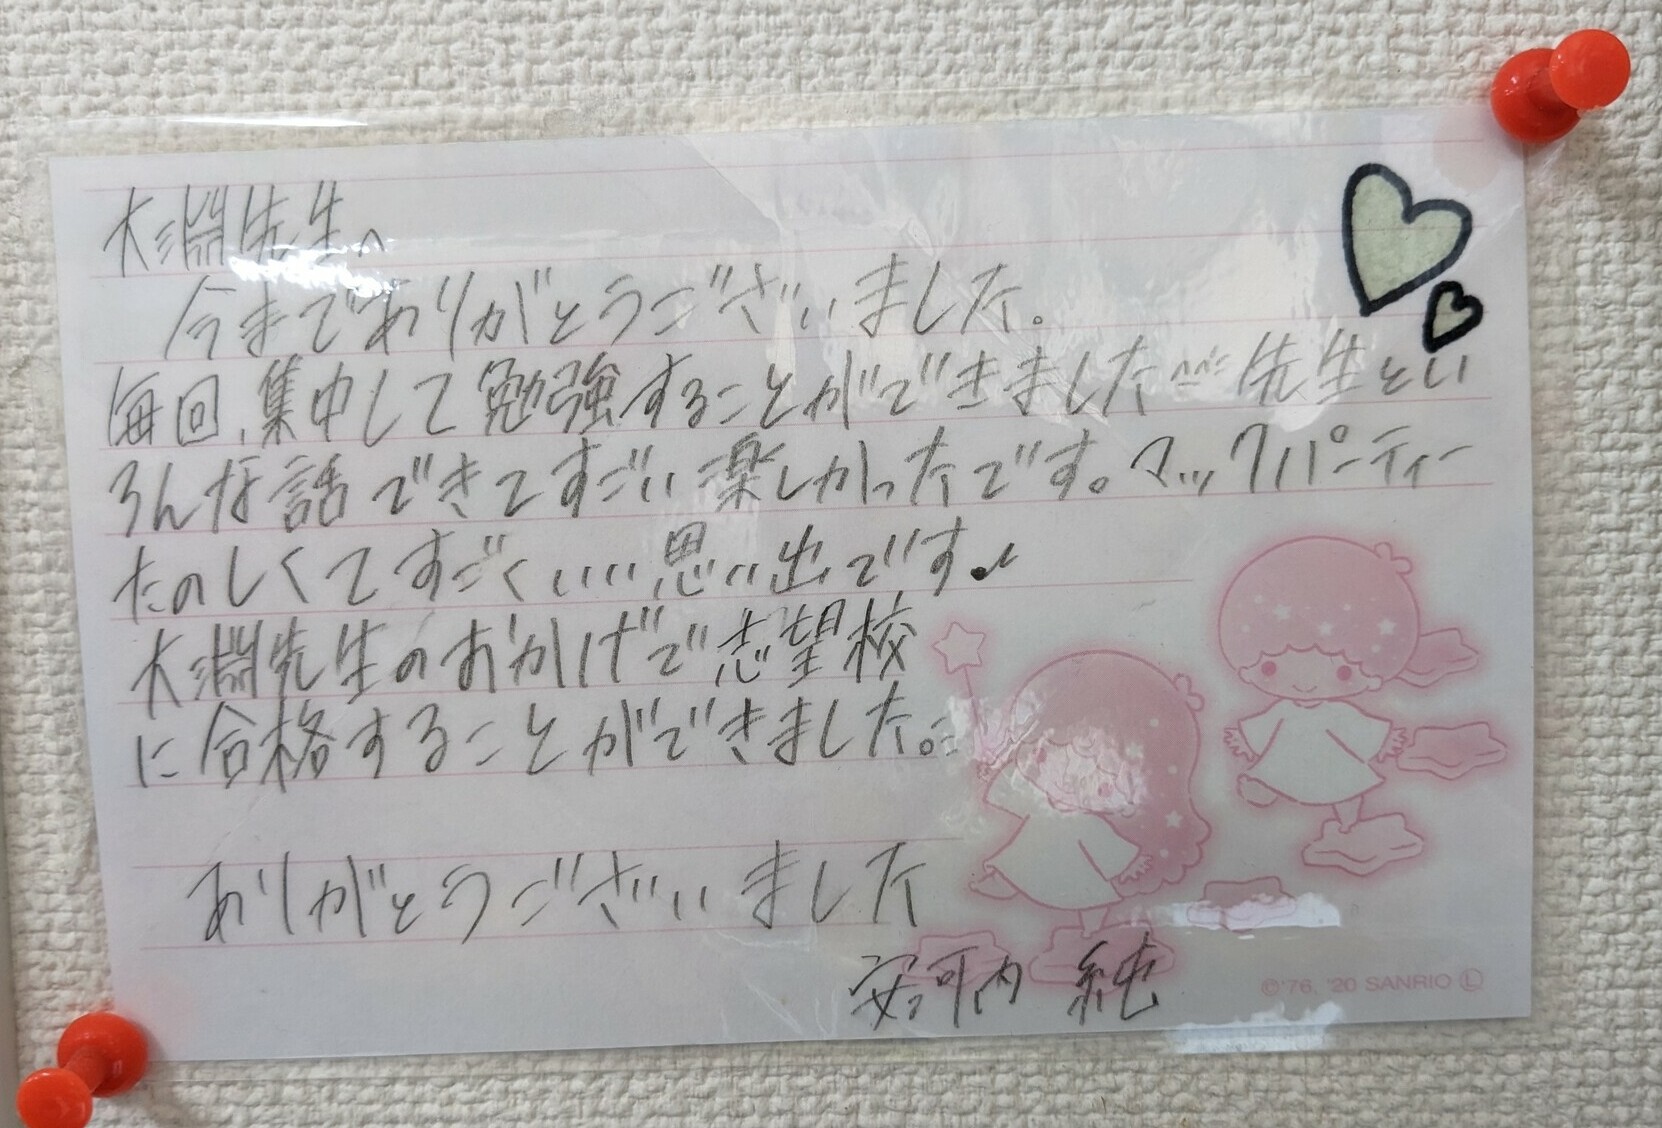 大淵先生へ
今までありがとうございました。
毎回、集中して勉強することができました 先生とい
ろんな話できてすごい楽しかったです。マックパーティー
たのしくてすごくいい思い出です♪
大淵先生のおかげで志望校
に合格することができました。
ありがとうございました
安河内 純
©'76, '20 SANRIO Ⓛ